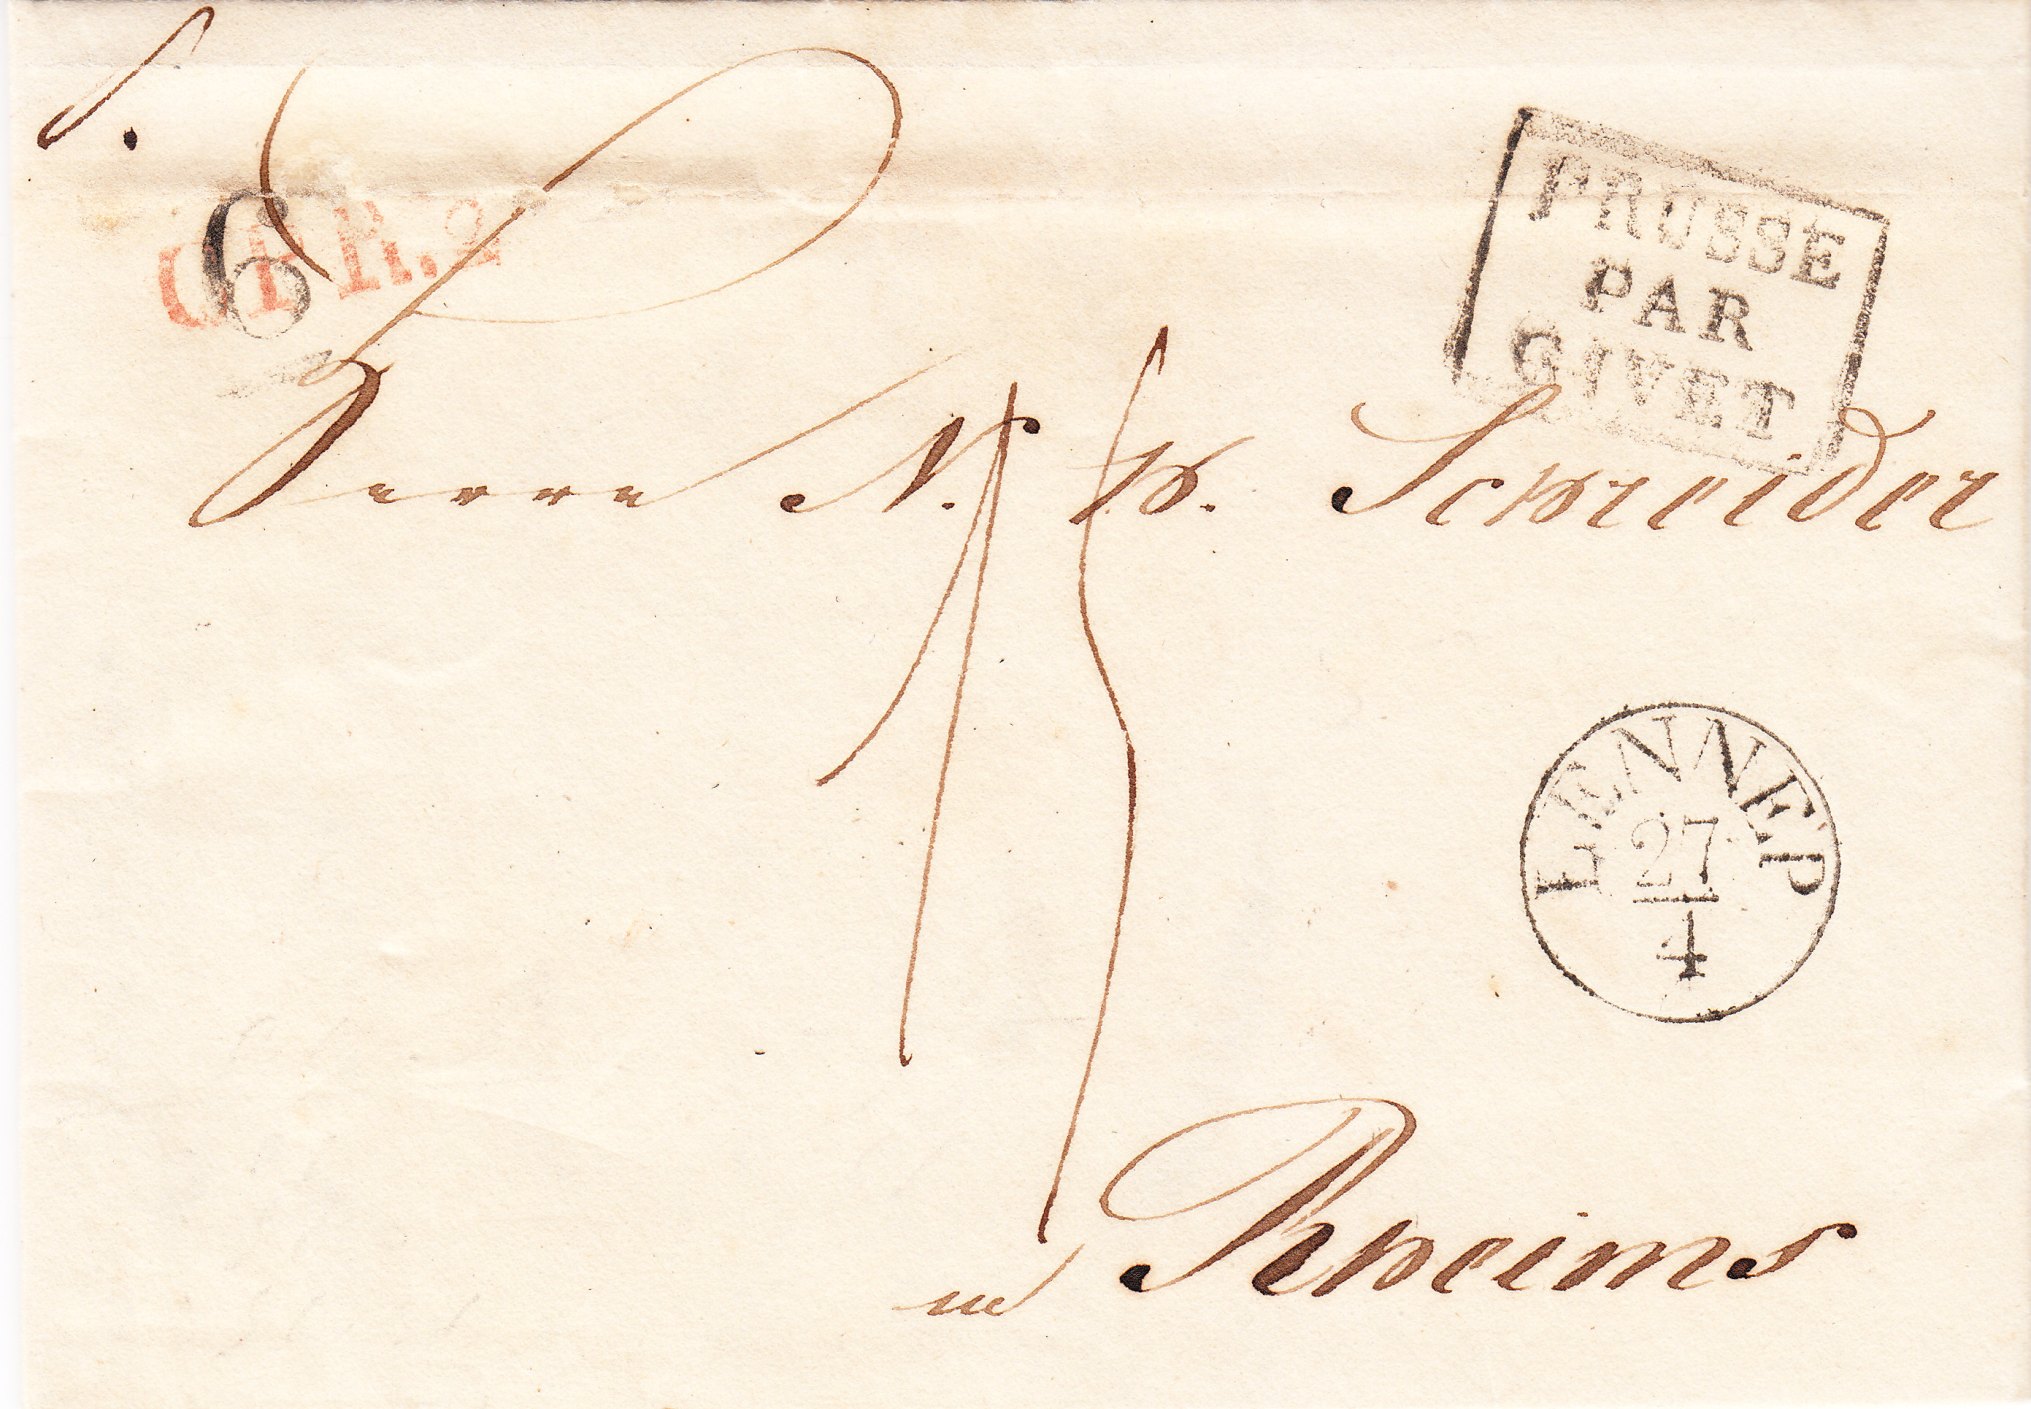 6
C.F.R. 2
PRUSSE
PAR
GIVET
Herrn N. H. Schreider
15
LENNEP
27
4
in Rheims